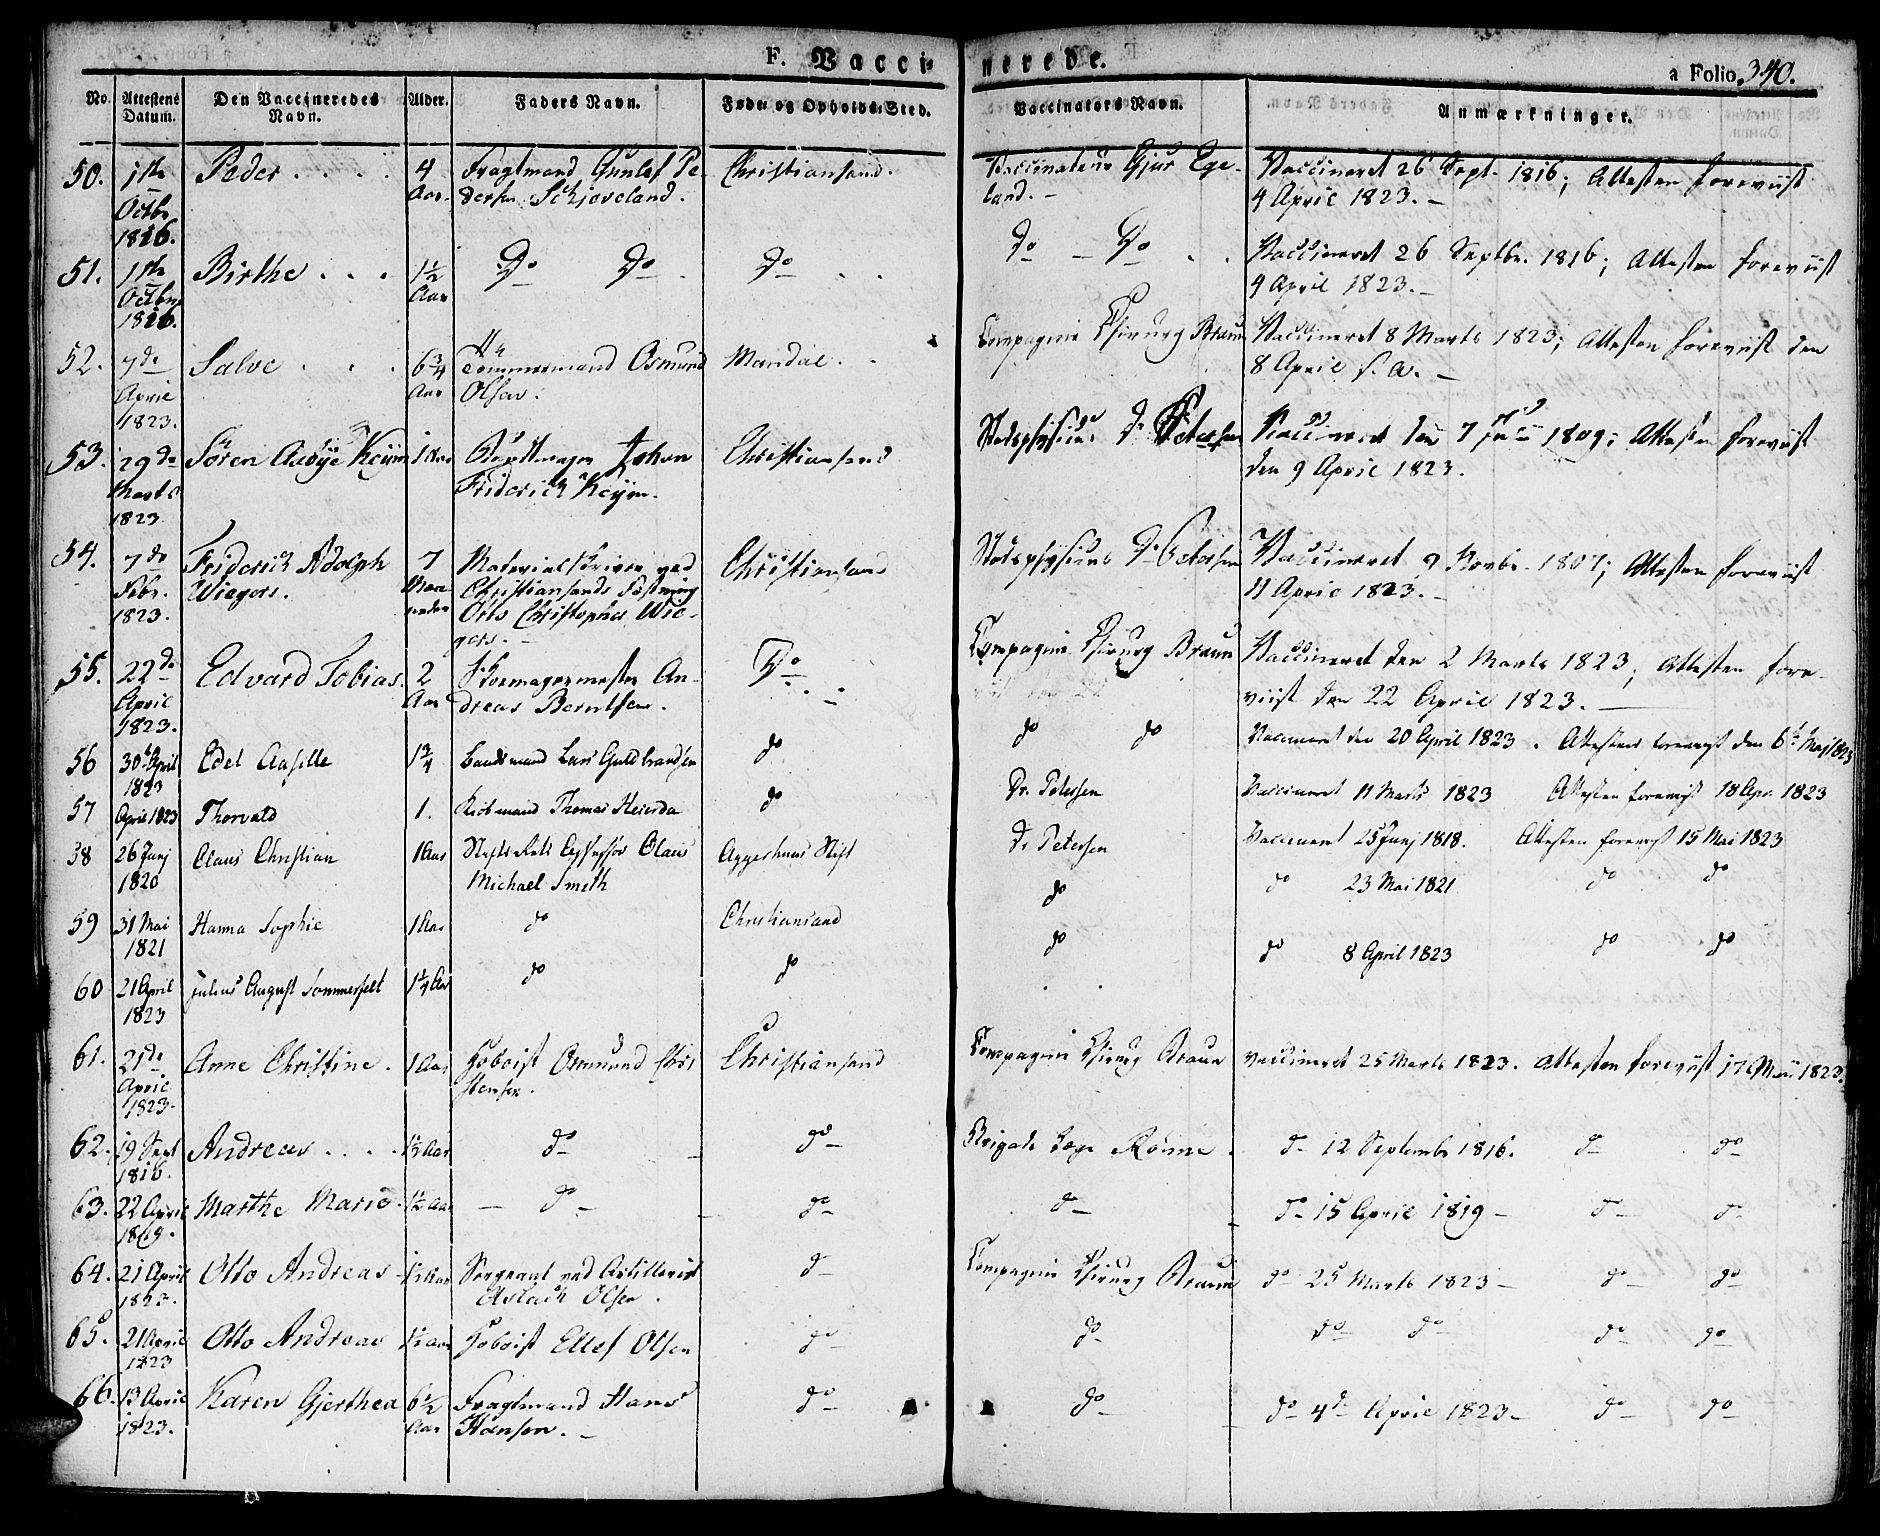 F. Vaccinerede.
a Folio 340.
No. Attestens Datum. Den Vaccineredes Navn. Alder. Faders Navn. Føde og Opholds-Sted. Vaccinators Navn. Anmærkninger.
50. 1ste Peder . . . . 4 Fragtmand Gunlef Pe- Christiansand. Vaccinateur Gjur Ege- Vaccineret 26 Sept. 1816; Attesten foreviist
Octbr Aar dersen Schioveland. land. 9 April 1823.
1816.
51. 1ste Birthe . . . 1½ Do Do Do Do Do Vaccineret 26 Septbr. 1816; Attesten foreviist
Octbr Aar 9 April 1823.
1816.
52. 7de Salve . . . 6¾ Tömmermand Osmund Mandal Compagnie Chirurg Braun Vaccineret 8 Marts 1823; Attesten foreviist den
April Aar Olsen. 8 April s. a.
1823.
53. 29de Sören Aabye Keym 1 Aar Johan Christiansand Stadsphysicus Dr Petersen Vaccineret den 7 1809; Attesten foreviist
Marts Friderich Keym. den 9 April 1823.
1823
54. 7de Friderich Adolph 7 Materialskriver ved Christiansand Stadsphysicus Dr Petersen Vaccineret 9 Novbr. 1807; Attesten foreviist
Febr. Wiegers. Maa- Christiansands Fæstning 11 April 1823.
1823. neder Otto Christopher Wie-
gers.
55. 22de Edvard Tobias 2 Skomagermester An- Do Compagnie Chirurg Braun Vaccineret den 2 Marts 1823; Attesten fore-
April Aar dreas Berntsen. viist den 22 April 1823.
1823.
56 30te April Edel 1¾ Baadsmand Lars Guldbrandsen do do do Vaccineret den 20 April 1823. Attesten forevist den 6te Maj 1823
1823
57 April 1823 Thorvald 1. Thomas Heierda do Dr. Petersen Vaccineret 11 Marts 1823 Attesten forevist 18 Apr. 1823
58 26 Junj Claus Christian 1 Aar Stifts Assessor Claus Aggerhuus Stift Dr Petersen Vaccineret 25 Junj 1818. Attesten forevist 15 Mai 1823
1820 Michael Smith
59 31 Mai Hanna Sophie 1 Aar do Christiansand do do 23 Mai 1821 do do
1821
60 21 April Julius August Sommerfelt 1¼ Aar do do do do 8 April 1823 do do
1823
61. 21de Anne Christine. 1 Aar Hoboist Osmund Chri- Christiansand Compagnie Chirurg Braun vaccineret 25 Marts 1823. Attesten foreviist 17 Maii 1823.
April stensen.
1823.
62. 19 Sept Andreas . . . . 1½ Aar do do Brigade Læge Rönne. do 12 Septembr 1816. do do
1816.
63. 22 April Marthe Marie 1½ Aar do do do do 15 April 1819 do do
1819.
64. 21 April Otto Andreas 1½ Aar Sergeant ved Artilleriet do Compagnie Chirurg Braun do 25 Marts 1823 do do
1823. Aslach Olsen.
65. 21 April Otto Andreas 1½ Aar Hoboist Ellef Olsen do do do do do do
1823
66. 13 April Karen Gjerthea 6½ Fragtmand Hans do do do 4de April 1823 do do
1823. Aar Hansen.